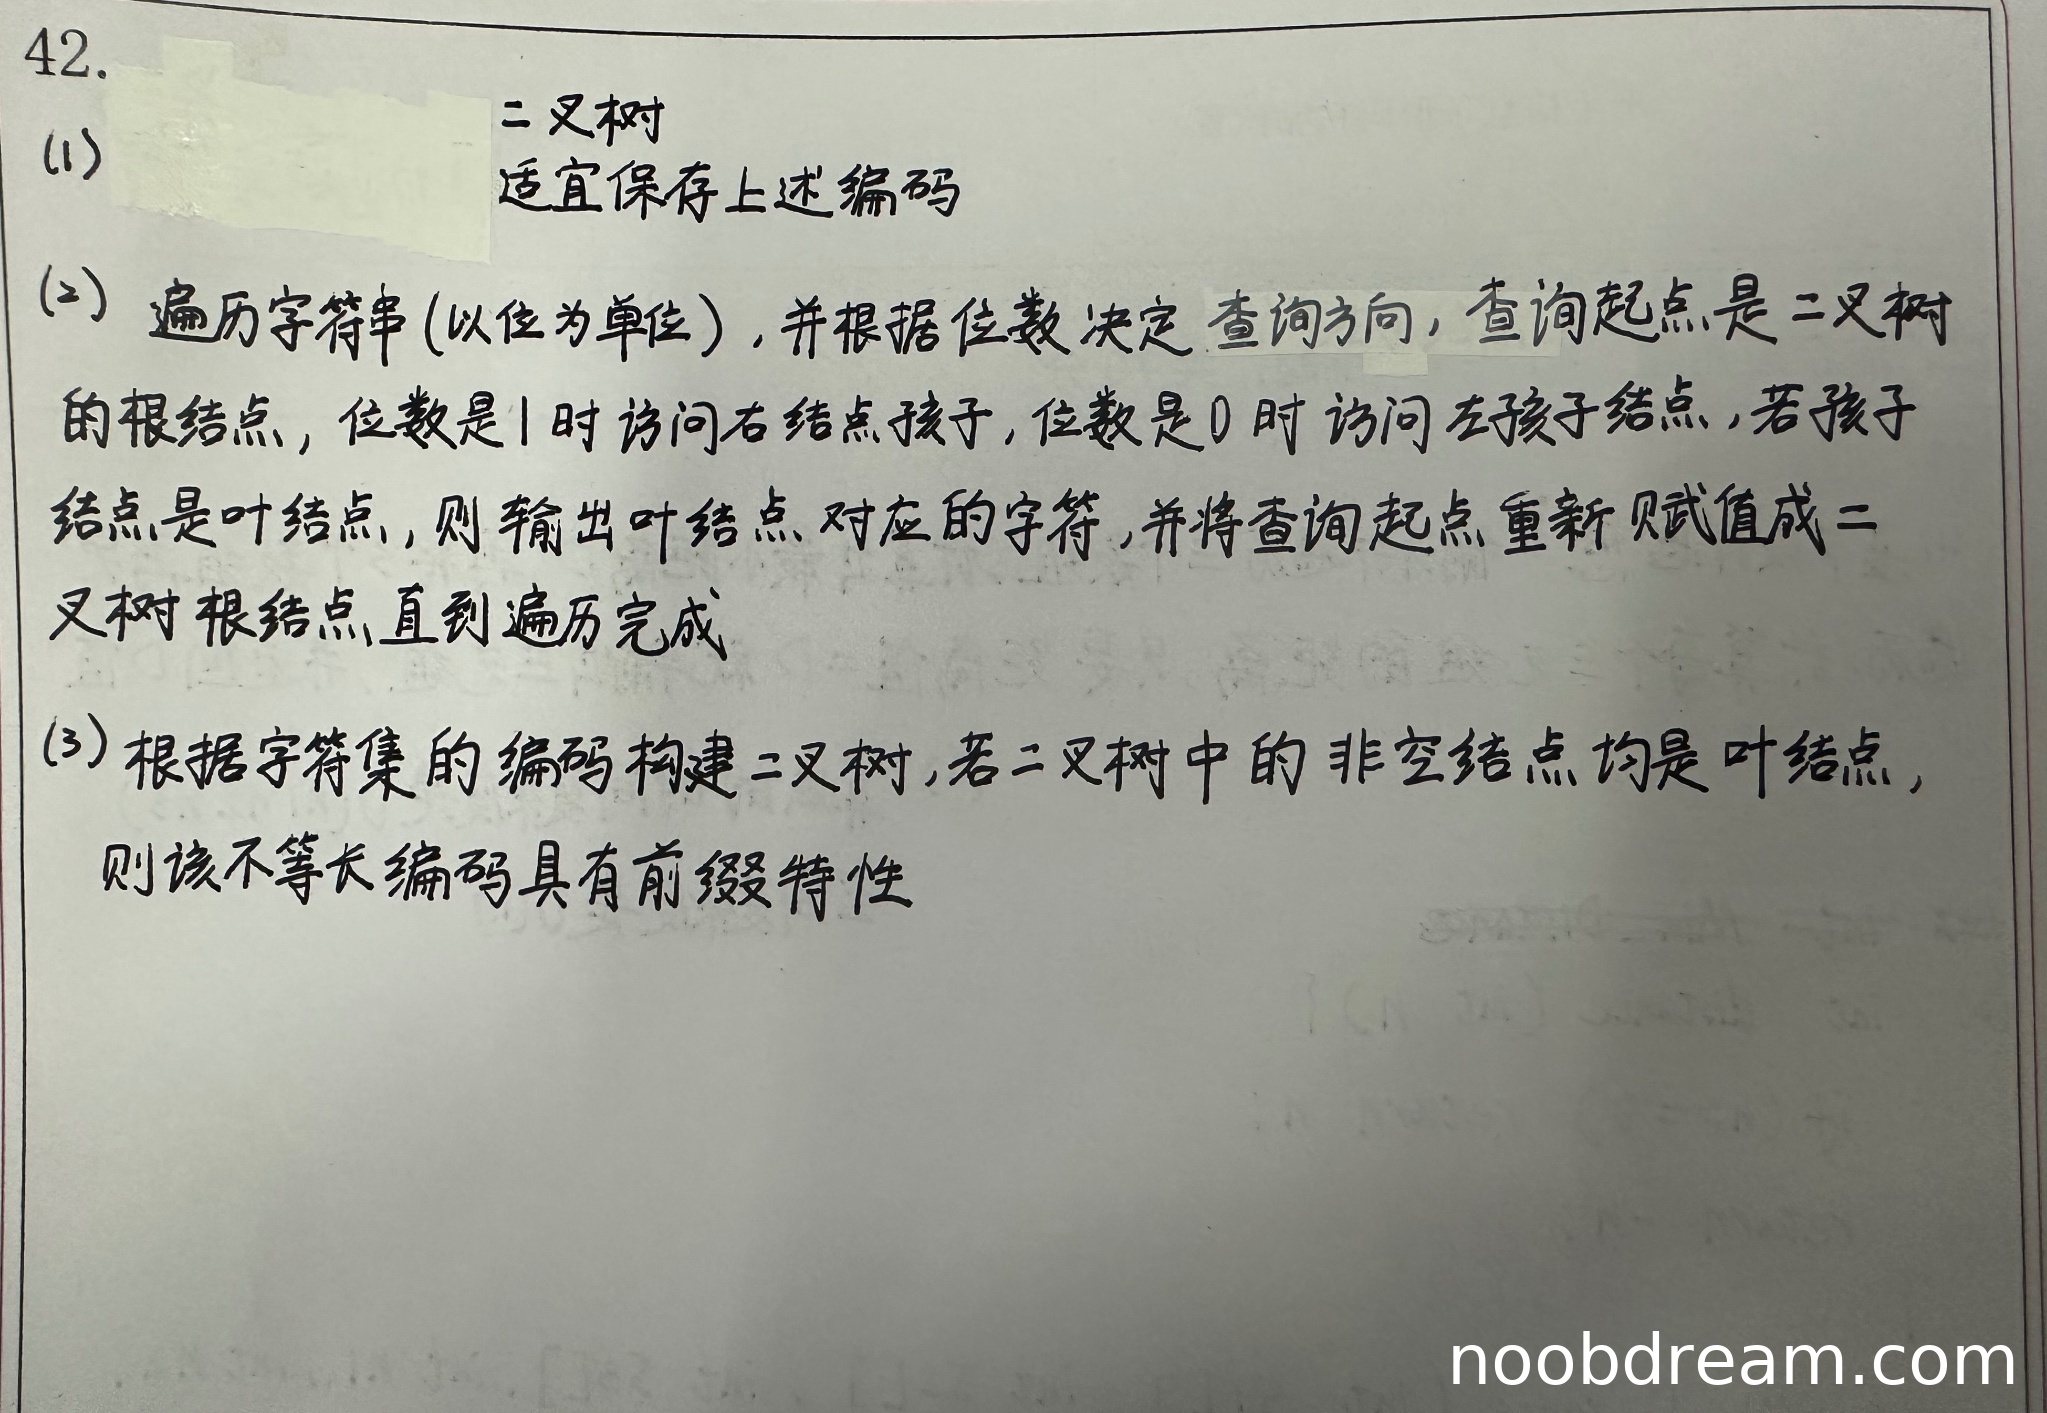 42.
(1) 二叉树
适宜保存上述编码
(2) 遍历字符串(以位为单位),并根据位数决定查询方向,查询起点是二叉树
的根结点,位数是1时访问右结点孩子,位数是0时访问左孩子结点,若孩子
结点是叶结点,则输出叶结点对应的字符,并将查询起点重新赋值成二
叉树根结点直到遍历完成
(3) 根据字符集的编码构建二叉树,若二叉树中的非空结点均是叶结点,
则该不等长编码具有前缀特性
noobdream.com